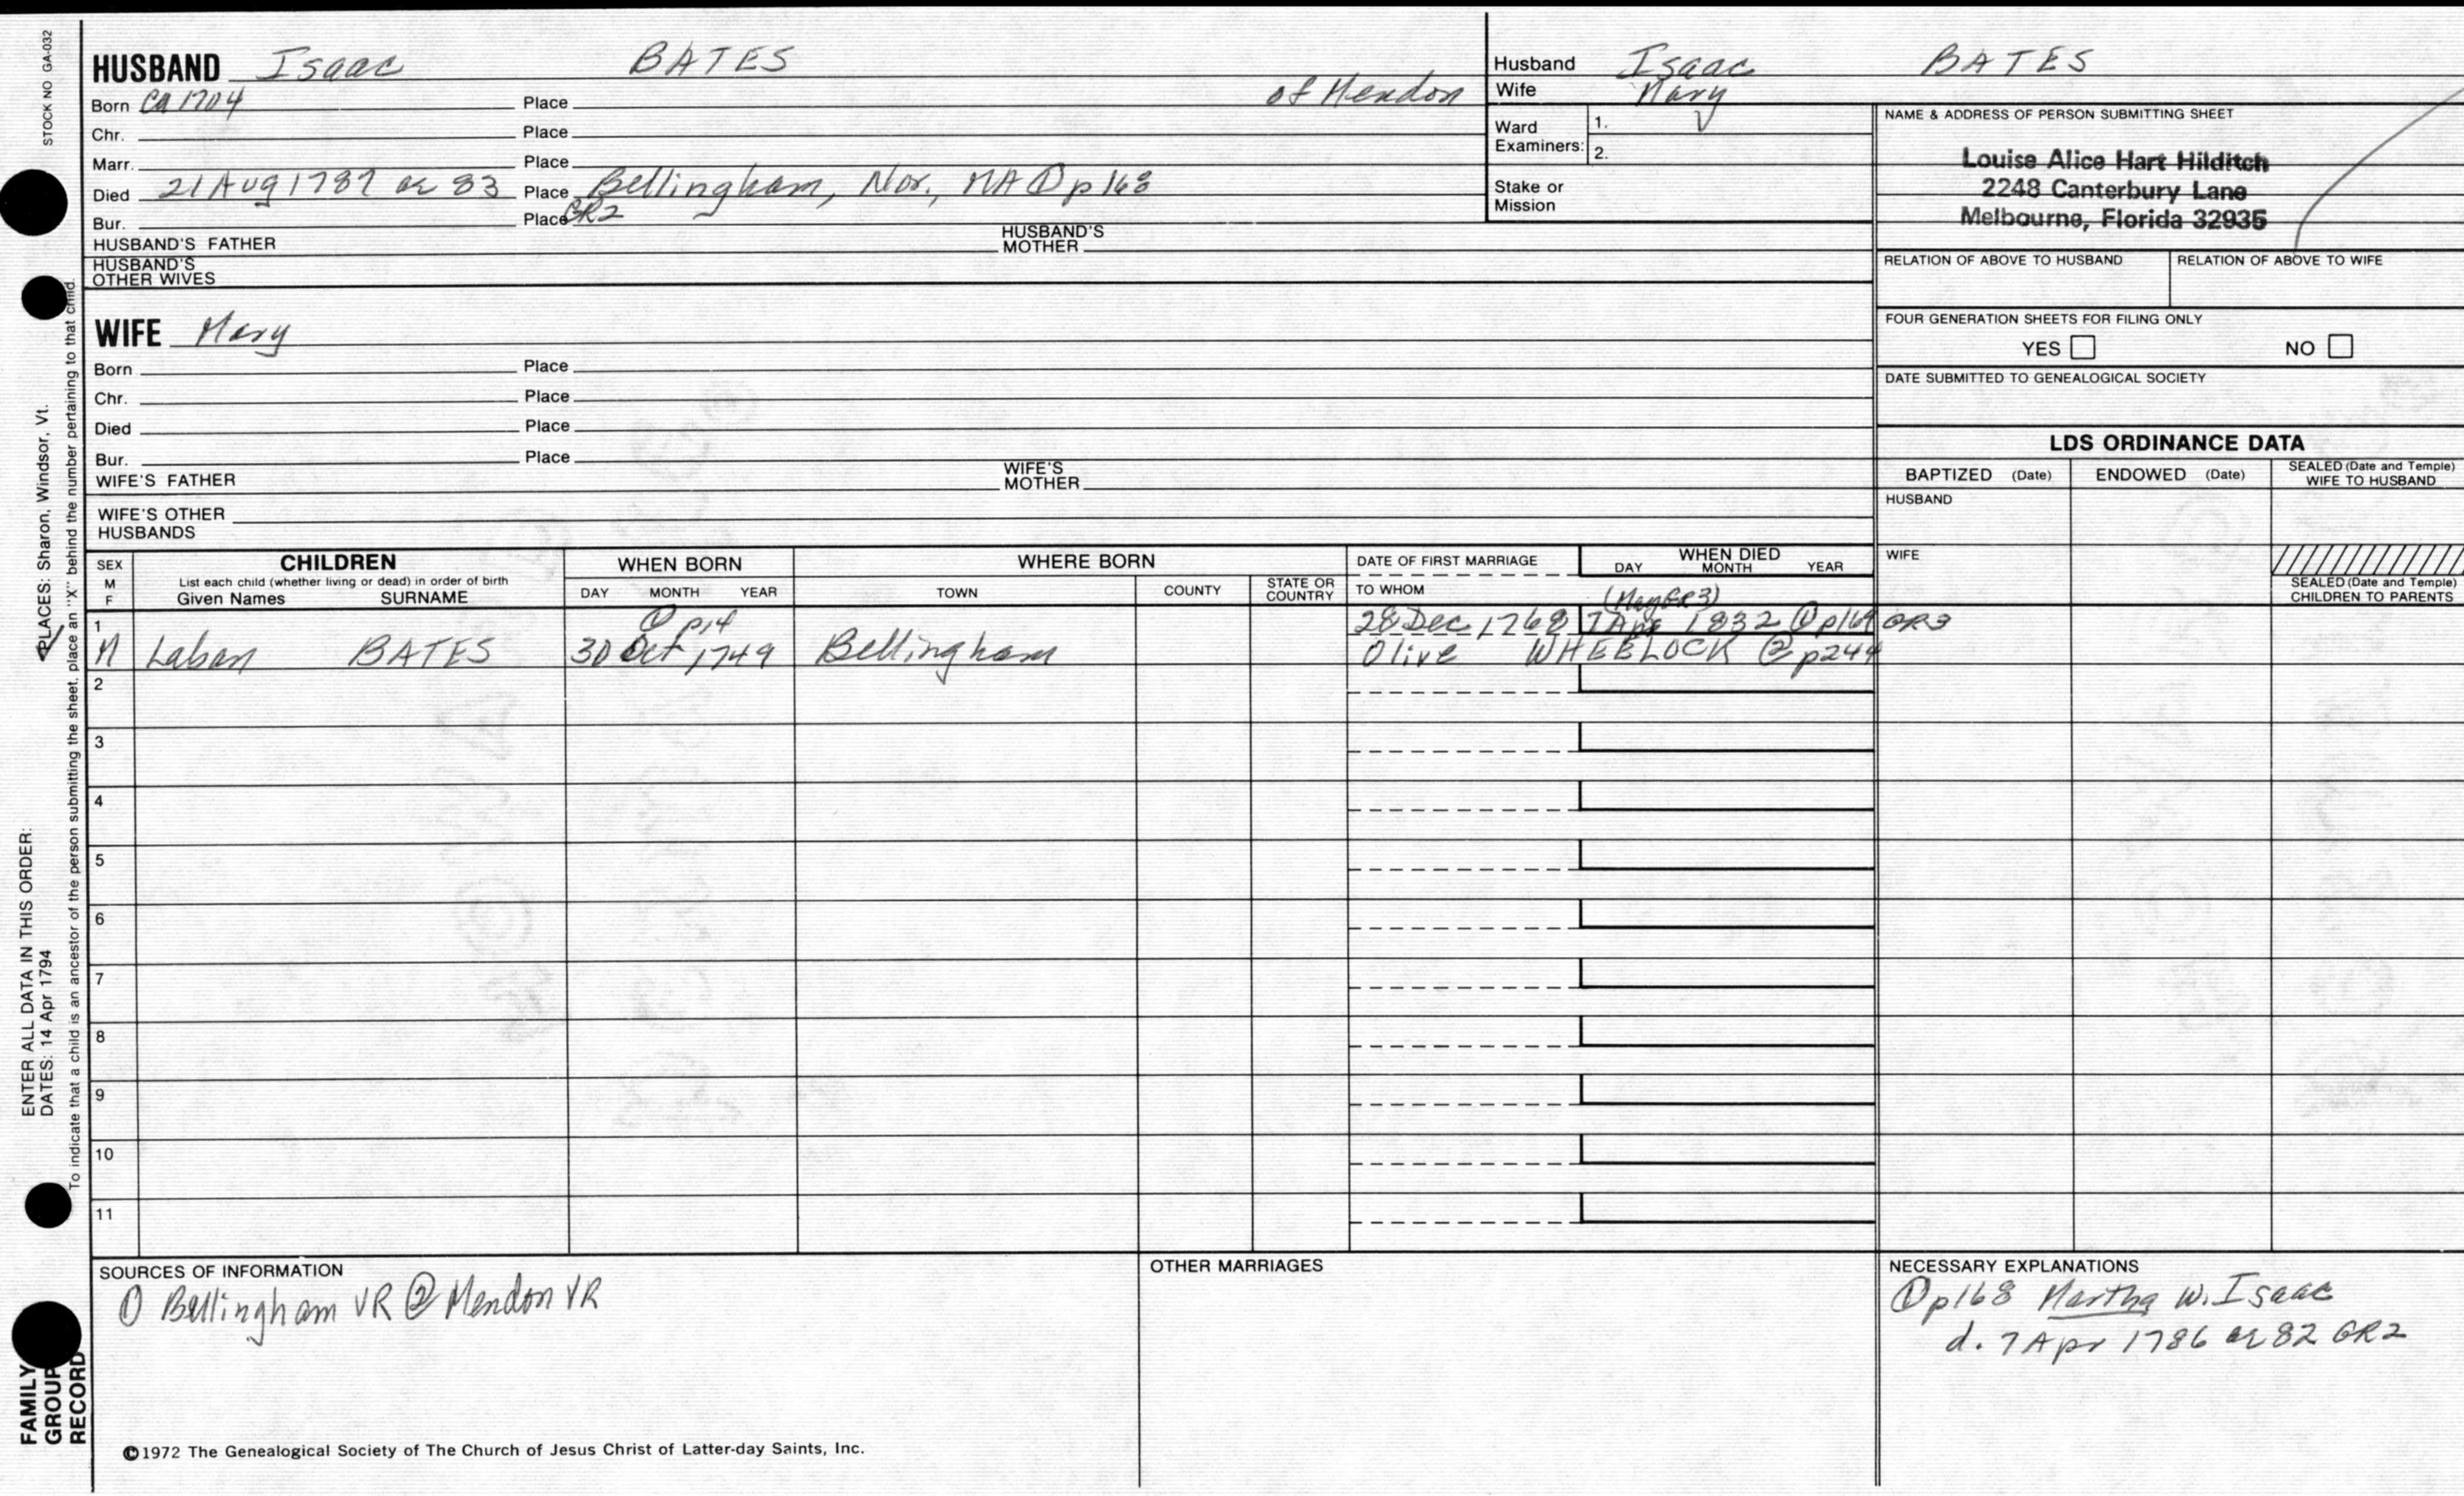 STOCK NO GA-032
HUSBAND Isaac BATES
Born CA 1704 Place of Mendon
Chr. Place
Marr. Place
Died 21 Aug 1787 or 83 Place Bellingham, Nor., MA ① p168
Bur. Place GR2
HUSBAND'S FATHER HUSBAND'S MOTHER
HUSBAND'S OTHER WIVES
WIFE Mary
Born Place
Chr. Place
Died Place
Bur. Place
WIFE'S FATHER WIFE'S MOTHER
WIFE'S OTHER HUSBANDS
Husband Isaac BATES
Wife Mary
Ward Examiners: 1.
2.
Stake or Mission
NAME & ADDRESS OF PERSON SUBMITTING SHEET
Louise Alice Hart Hilditch
2248 Canterbury Lane
Melbourne, Florida 32935
RELATION OF ABOVE TO HUSBAND RELATION OF ABOVE TO WIFE
FOUR GENERATION SHEETS FOR FILING ONLY
YES NO
DATE SUBMITTED TO GENEALOGICAL SOCIETY
LDS ORDINANCE DATA
BAPTIZED (Date) ENDOWED (Date) SEALED (Date and Temple) WIFE TO HUSBAND
HUSBAND
WIFE
SEALED (Date and Temple) CHILDREN TO PARENTS
SEX M F CHILDREN WHEN BORN WHERE BORN DATE OF FIRST MARRIAGE WHEN DIED
List each child (whether living or dead) in order of birth
Given Names SURNAME DAY MONTH YEAR TOWN COUNTY STATE OR COUNTRY TO WHOM DAY MONTH YEAR
(May GR3)
1 ① p14 28 Dec 1768 7 Apr 1832 ① p169 GR3
M Laban BATES 30 Oct 1749 Bellingham Olive WHEELOCK ② p244
2
3
4
5
6
7
8
9
10
11
SOURCES OF INFORMATION
① Bellingham VR ② Mendon VR
OTHER MARRIAGES
NECESSARY EXPLANATIONS
① p168 Martha W. Isaac
d. 7 Apr 1786 or 82 GR2
©1972 The Genealogical Society of The Church of Jesus Christ of Latter-day Saints, Inc.
FAMILY GROUP RECORD
ENTER ALL DATA IN THIS ORDER:
DATES: 14 Apr 1794 PLACES: Sharon, Windsor, Vt.
To indicate that a child is an ancestor of the person submitting the sheet, place an "X" behind the number pertaining to that child.